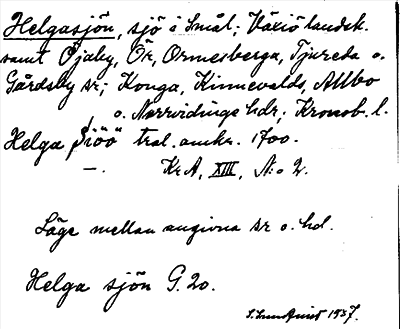 Helgasjön, sjö i Smål; Växiö landsk.
samt Öjaby, Ör, Ormesberga, Tjureda o.
Gårdsby sr; Konga, Kinnevalds, Allbo
o. Norrvidinge hdr, Kronob. l.
Helga Siöö tral. omkr. 1700.
—. KrA, XIII, N:o 2.
Läge mellan angivna sr o. hd.
Helga sjön G. 20.
S. Lundquist 1937.